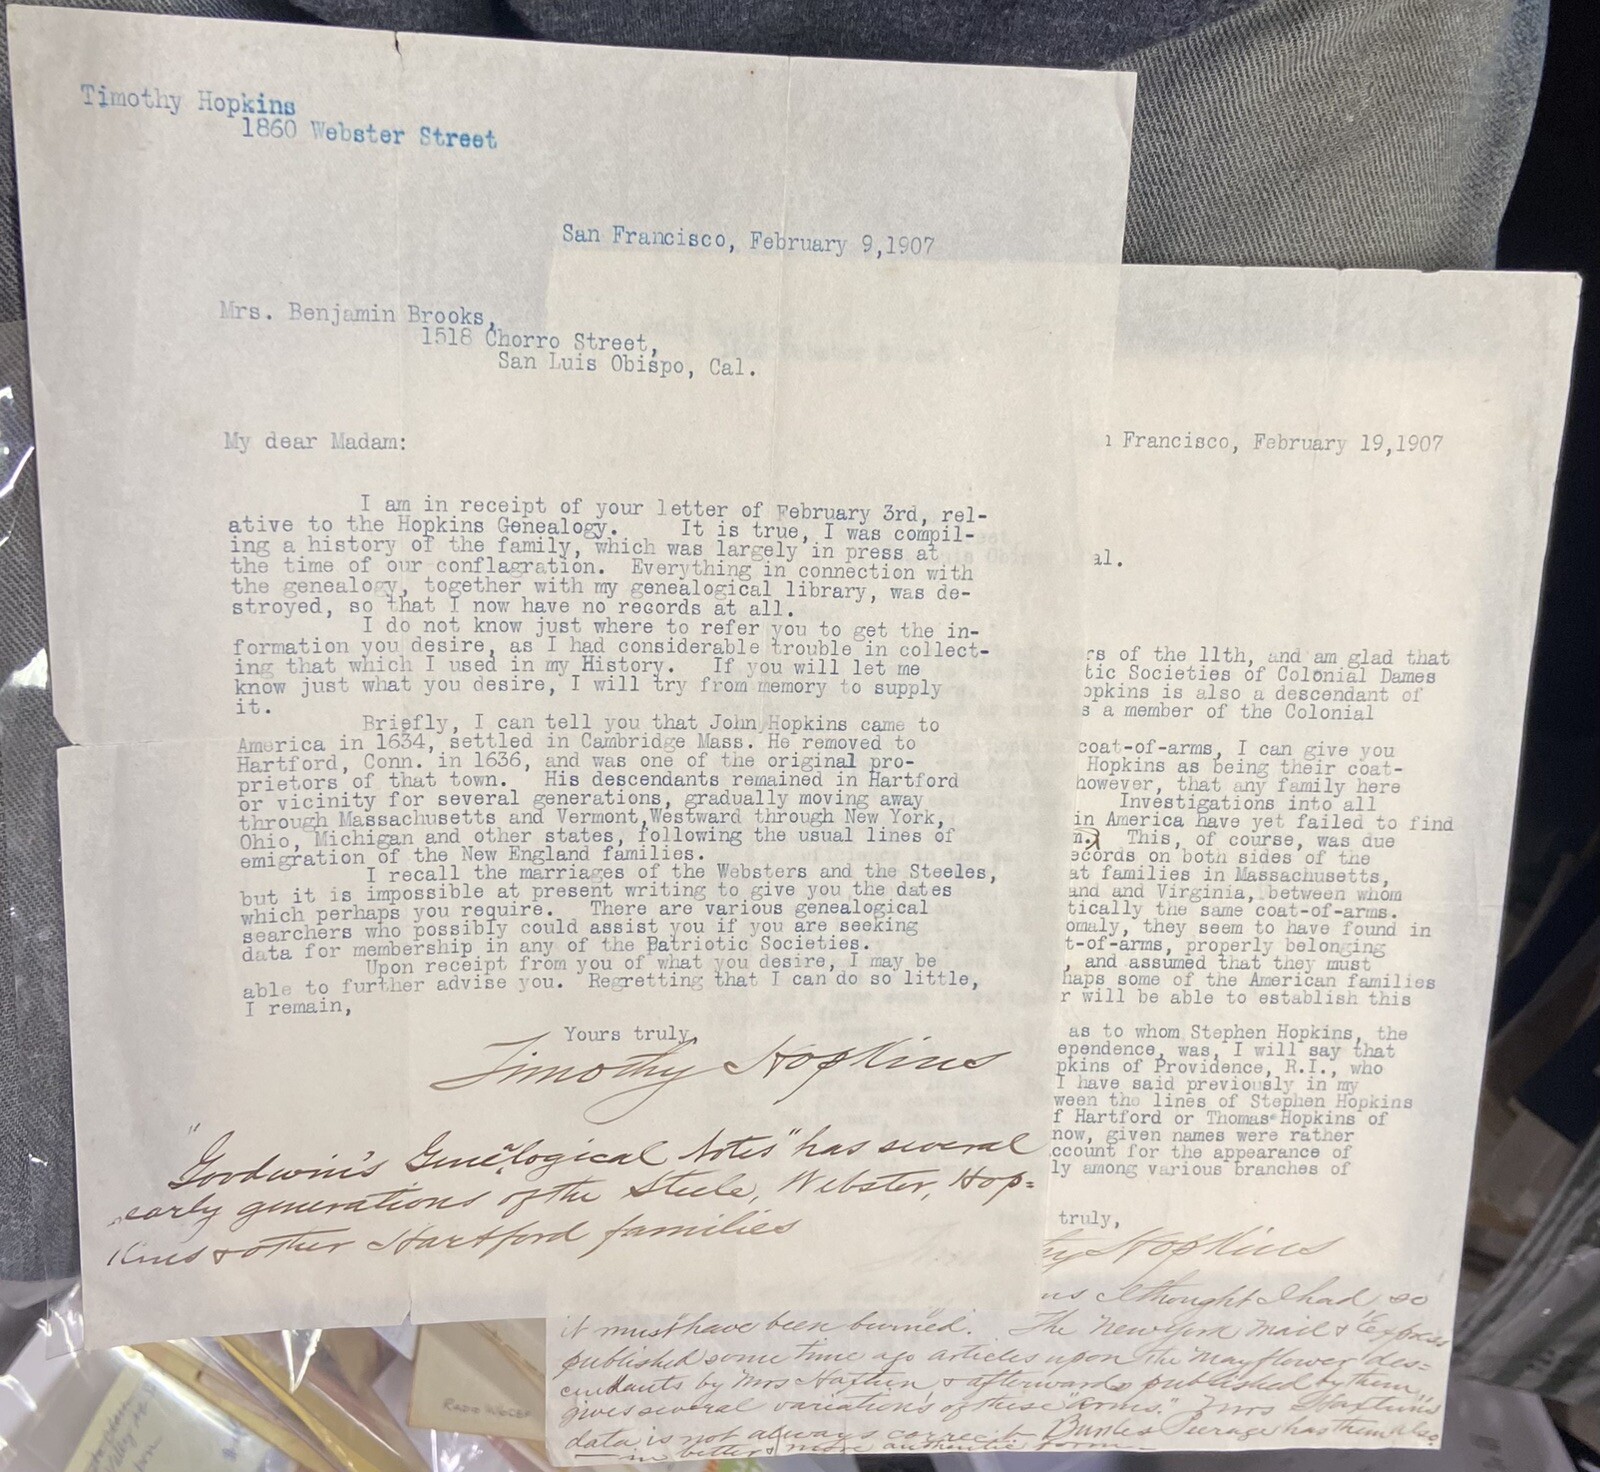 Timothy Hopkins
1860 Webster Street
San Francisco, February 9,1907
Mrs. Benjamin Brooks,
1518 Chorro Street,
San Luis Obispo, Cal.
My dear Madam:
I am in receipt of your letter of February 3rd, rel-
ative to the Hopkins Genealogy. It is true, I was compil-
ing a history of the family, which was largely in press at
the time of our conflagration. Everything in connection with
the genealogy, together with my genealogical library, was de-
stroyed, so that I now have no records at all.
I do not know just where to refer you to get the in-
formation you desire, as I had considerable trouble in collect-
ing that which I used in my History. If you will let me
know just what you desire, I will try from memory to supply
it.
Briefly, I can tell you that John Hopkins came to
America in 1634, settled in Cambridge Mass. He removed to
Hartford, Conn. in 1636, and was one of the original pro-
prietors of that town. His descendants remained in Hartford
or vicinity for several generations, gradually moving away
through Massachusetts and Vermont,Westward through New York,
Ohio, Michigan and other states, following the usual lines of
emigration of the New England families.
I recall the marriages of the Websters and the Steeles,
but it is impossible at present writing to give you the dates
which perhaps you require. There are various genealogical
searchers who possibly could assist you if you are seeking
data for membership in any of the Patriotic Societies.
Upon receipt from you of what you desire, I may be
able to further advise you. Regretting that I can do so little,
I remain,
Yours truly,
Timothy Hopkins
"Goodwin's Genealogical Notes" has several
early generations of the Steele, Webster, Hop=
kins & other Hartford families
n Francisco, February 19,1907
al.
rs of the 11th, and am glad that
tic Societies of Colonial Dames
opkins is also a descendant of
s a member of the Colonial
coat-of-arms, I can give you
Hopkins as being their coat-
however, that any family here
Investigations into all
in America have yet failed to find
n. This, of course, was due
ecords on both sides of the
at families in Massachusetts,
and and Virginia, between whom
tically the same coat-of-arms.
omaly, they seem to have found in
t-of-arms, properly belonging
, and assumed that they must
haps some of the American families
r will be able to establish this
as to whom Stephen Hopkins, the
ependence, was, I will say that
pkins of Providence, R.I., who
I have said previously in my
ween the lines of Stephen Hopkins
f Hartford or Thomas Hopkins of
now, given names were rather
ccount for the appearance of
ly among various branches of
truly,
hy Hopkins
ms I thought I had so
it must have been burned. The New York Mail & Express
published some time ago articles upon the Mayflower des=
cendants by Mrs & afterwards published by them,
gives several variations of these "arms". Mrs
data is not always correct Burkes Peerage has them also
in better & more authentic form